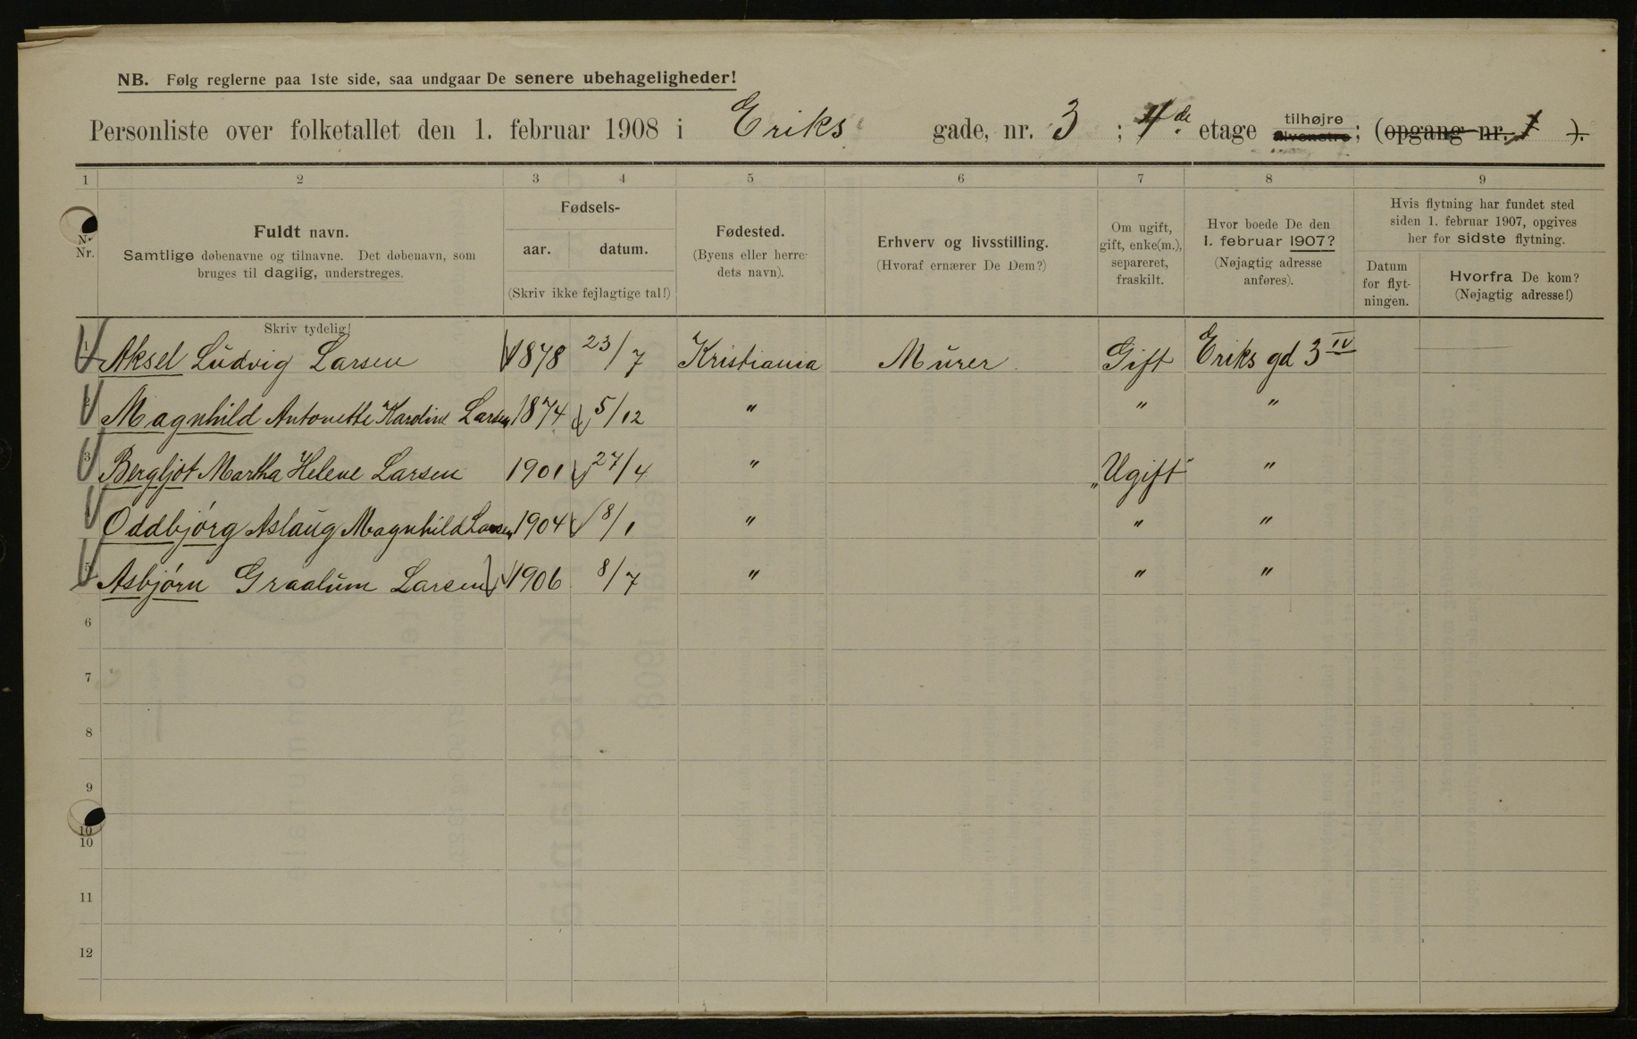 NB. Følg reglerne paa 1ste side, saa undgaar De senere ubehageligheder!
Personliste over folketallet den 1. februar 1908 i Eriks gade, nr. 3 ; 4de etage tilhøjre tilvenstre; (opgang nr. 1 ).
1 2 3 4 5 6 7 8 9
Nr.
Fuldt navn.
Samtlige døbenavne og tilnavne. Det døbenavn, som
bruges til daglig, understreges.
Skriv tydelig!
Fødsels-
aar. datum.
(Skriv ikke fejlagtige tal!)
Fødested.
(Byens eller herre-
dets navn).
Erhverv og livsstilling.
(Hvoraf ernærer De Dem?)
Om ugift,
gift, enke(m.),
separeret,
fraskilt.
Hvor boede De den
1. februar 1907?
(Nøjagtig adresse
anføres).
Hvis flytning har fundet sted
siden 1. februar 1907, opgives
her for sidste flytning.
Datum
for flyt-
ningen.
Hvorfra De kom?
(Nøjagtig adresse!)
1 Aksel Ludvig Larsen 1878 23/7 Kristiania Murer Gift Eriks gd 3 IV
2 Magnhild Antonette Karoline Larsen 1874 5/12 " " "
3 Bergljot Martha Helene Larsen 1901 27/4 " „Ugift" "
Oddbjørg Aslaug Magnhild Larsen 1904 8/1 " " "
5 Asbjørn Graalum Larsen 1906 8/7 " " "
6
7
8
9
10
10
11
12